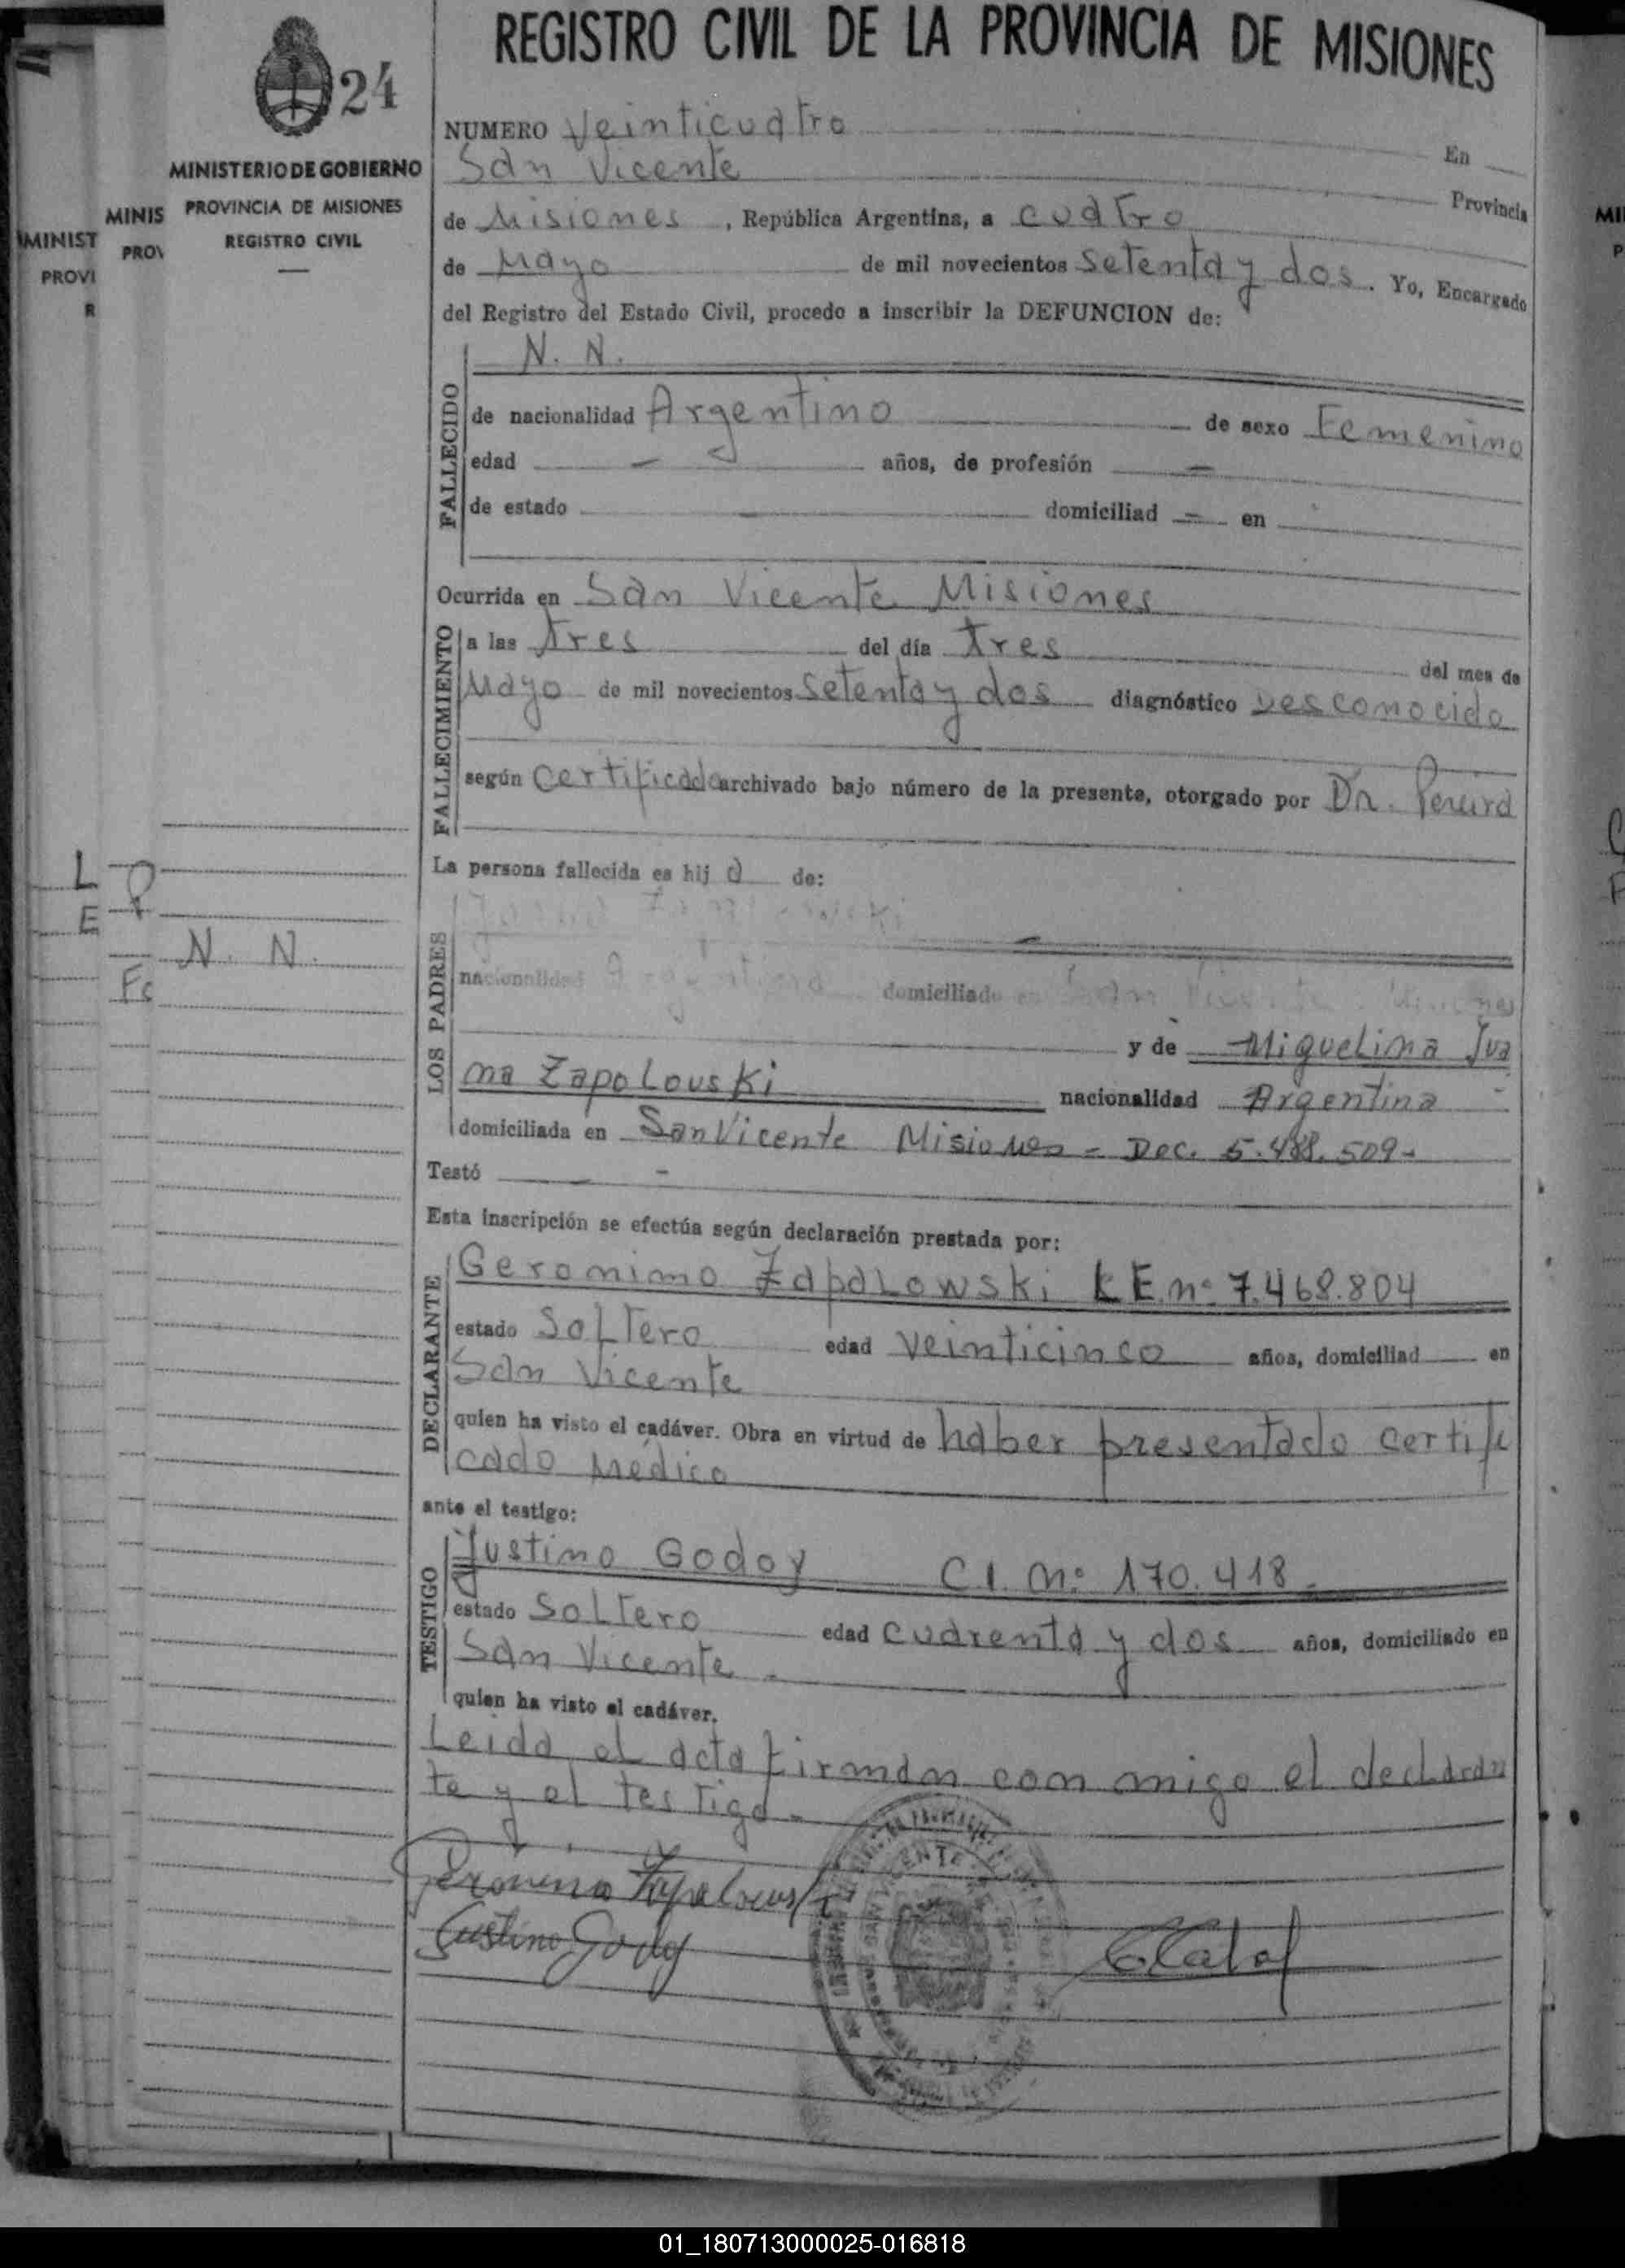 REGISTRO CIVIL DE LA PROVINCIA DE MISIONES
24
MINISTERIO DE GOBIERNO
PROVINCIA DE MISIONES
REGISTRO CIVIL
MINIS
PROV
MINIST
PROVI
R
NUMERO Veinticuatro En
San Vicente Provincia
de Misiones, República Argentina, a cuatro
de Mayo de mil novecientos setenta y dos. Yo, Encargado
del Registro del Estado Civil, procedo a inscribir la DEFUNCION de:
FALLECIDO
N. N.
de nacionalidad Argentino de sexo Femenino
edad — años, de profesión —
de estado — domiciliad — en
Ocurrida en San Vicente Misiones
FALLECIMIENTO
a las tres del día tres del mes de
Mayo de mil novecientos setenta y dos diagnóstico Desconocido
según certificado archivado bajo número de la presente, otorgado por Dr. Pereira
La persona fallecida es hij a de:
L
E
N. N.
Fc
LOS PADRES
nacionalidad Argentina domiciliado en San Vicente Misiones
y de Miguelina Jua
na Zapolouski nacionalidad Argentina
domiciliada en San Vicente Misiones - Doc. 5.488.509-
Testó —
Esta inscripción se efectúa según declaración prestada por:
DECLARANTE
Geronimo Zapalowski L E. nº 7.468.804
estado Soltero edad veinticinco años, domiciliad en
San Vicente
quien ha visto el cadáver. Obra en virtud de haber presentado certifi
cado Médico
ante el testigo:
TESTIGO
Justino Godoy C.I. nº 170.418.
estado Soltero edad cuarenta y dos años, domiciliado en
San Vicente.
quien ha visto el cadáver.
Leida el acta firman con migo el declaran
te y el testigo.-
Geronimo Zapalouski
Justino Godoy
01_180713000025-016818